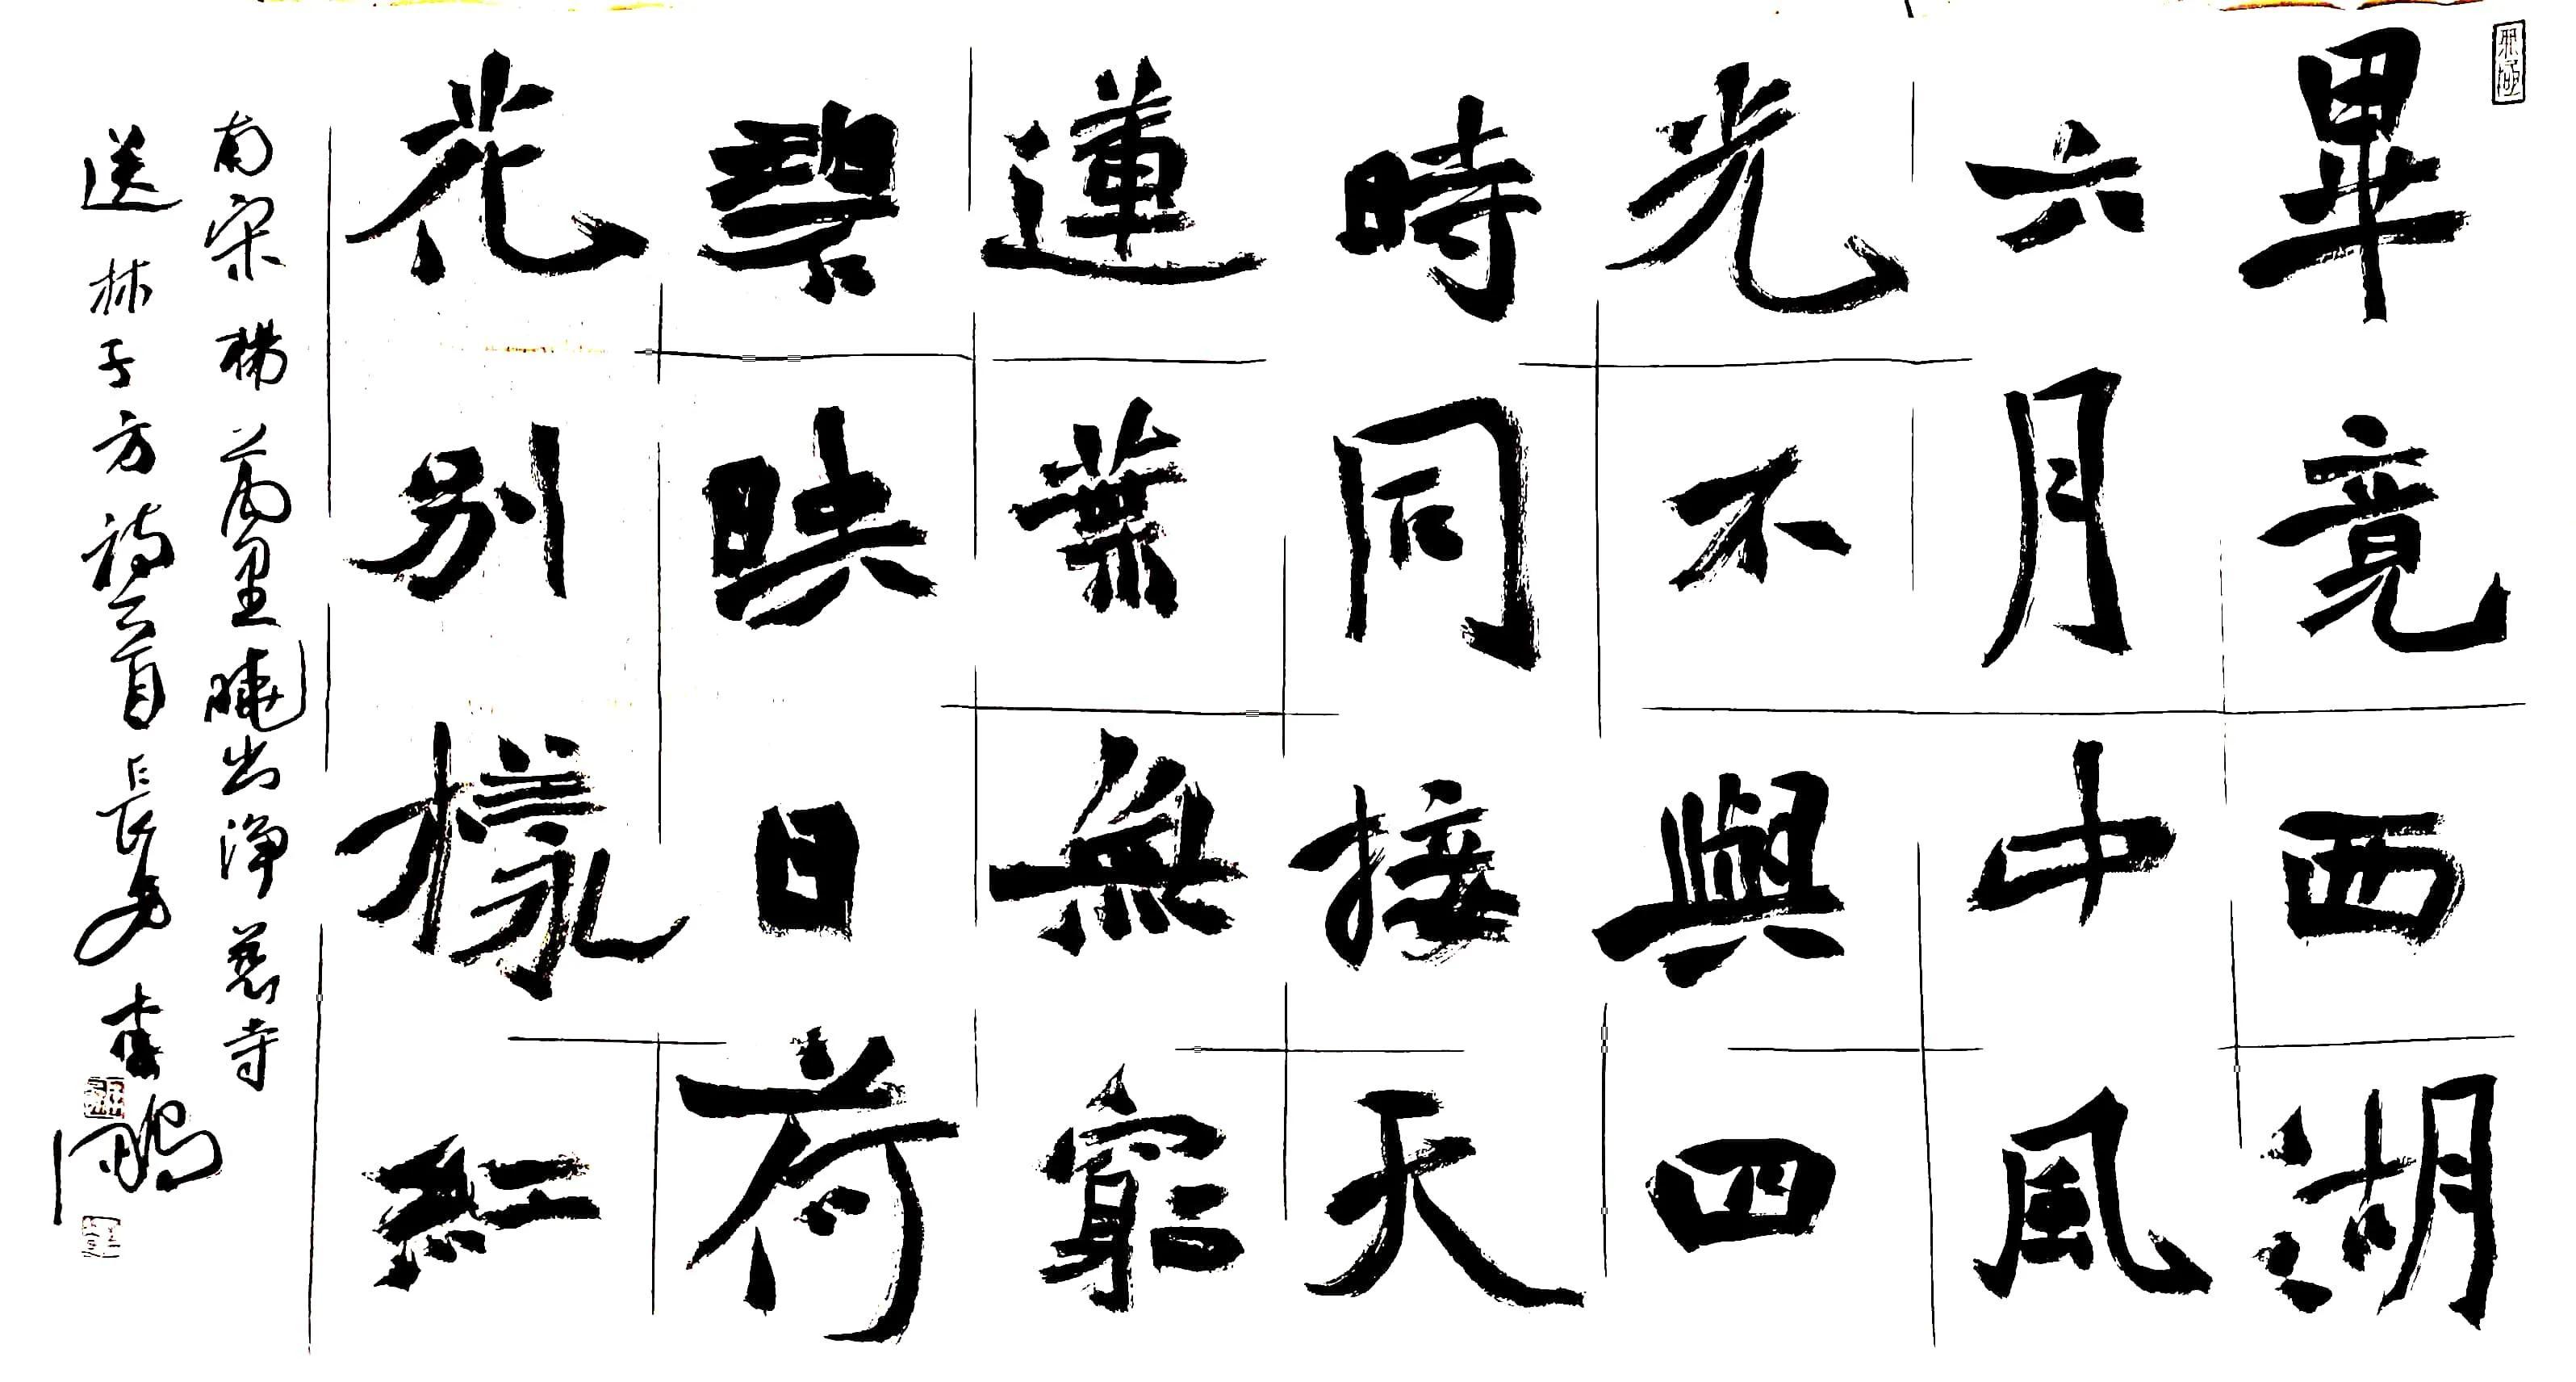 畢竟西湖
六月中風
光不與四
時同接天
蓮葉無窮
碧映日荷
花別樣紅
南宋楊萬里曉出淨慈寺
送林子方詩一首長安